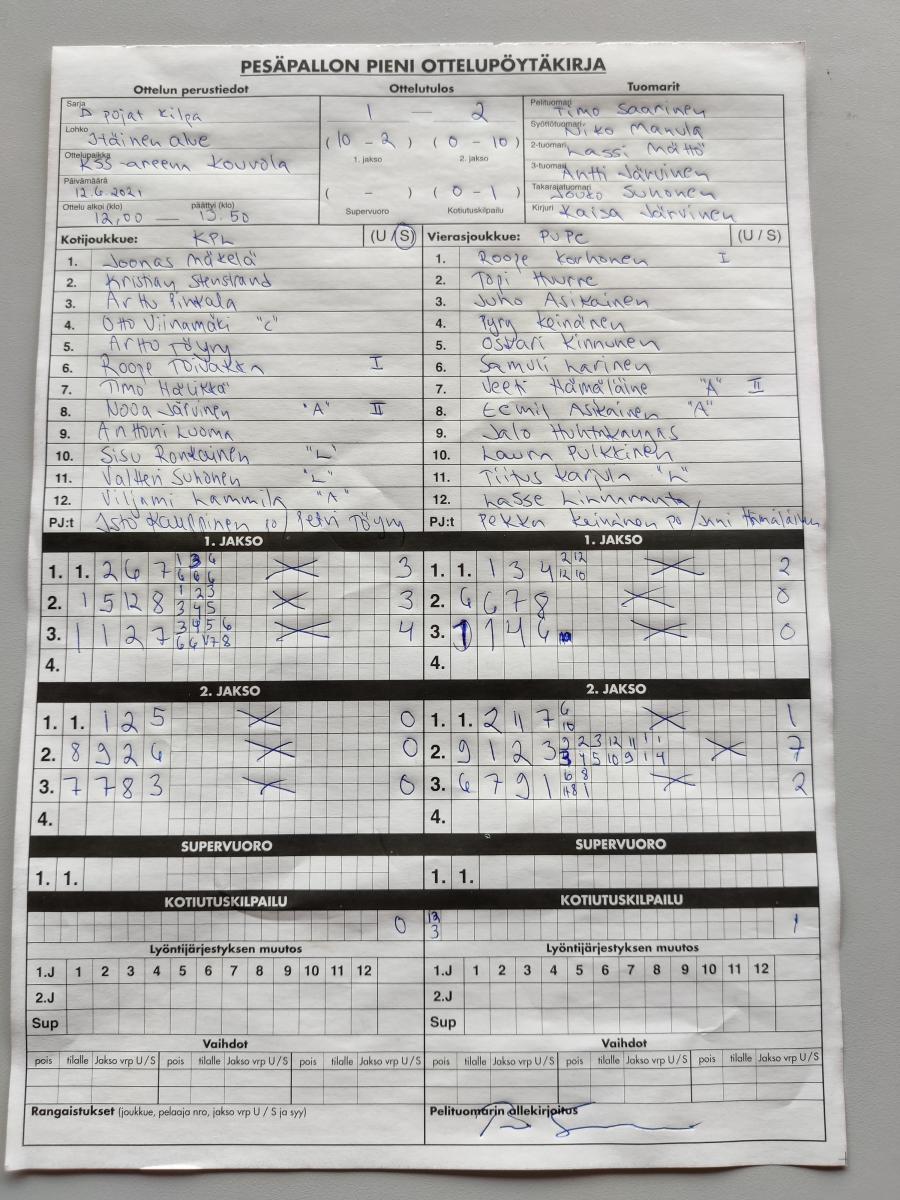 PESÄPALLON PIENI OTTELUPÖYTÄKIRJA
Ottelun perustiedot Ottelutulos Tuomarit
Sarja D pojat kilpa
Lohko Itäinen alue
Ottelupaikka KSS-areena Kouvola
Päivämäärä 12.6.2021
Ottelu alkoi (klo) päättyi (klo)
12,00 — 13.50
1 — 2
(10 - 2) (0 - 10)
1. jakso 2. jakso
( - ) (0 - 1)
Supervuoro Kotiutuskilpailu
Pelituomari Timo Saarinen
Syöttötuomari Niko Manula
2-tuomari Lassi Mättö
3-tuomari Antti Järvinen
Takarajatuomari Jouko Suhonen
Kirjuri Kaisa Järvinen
Kotijoukkue: KPL (U / S)
1. Joonas Mäkelä
2. Kristian Stenstrand
3. Arttu Pinkala
4. Otto Viinamäki "C"
5. Arttu Töyry
6. Roope Toivakka I
7. Timo Hälikkä
8. Nooa Järvinen "A" II
9. Anttoni Luoma
10. Sisu Ronkainen "L"
11. Valtteri Suhonen "L"
12. Viljami Lammila "A"
PJ:t Isto Kauppinen po / Petri Töyry
Vierasjoukkue: PuPe (U / S)
1. Roope Korhonen I
2. Topi Huurre
3. Juho Asikainen
4. Pyry Keinänen
5. Oskari Kinnunen
6. Samuli Karinen
7. Veeti Hämäläine "A" II
8. Eemil Asikainen "A"
9. Jalo Huhtakangas
10. Laura Pulkkinen
11. Tiitus "L"
12. Lasse Linnanranta
PJ:t Pekka Keinänen po / Juni Hämäläinen
1. JAKSO
1. 1. 2 6 7 1 3 6 3
6 6 6
2. 1 5 12 8 1 2 3 3
3 4 5
3. 1 1 2 7 3 4 5 6 4
6 6 7 8
4.
1. JAKSO
1. 1. 1 3 4 2 12 2
12 10
2. 6 6 7 8 0
3. 1 1 4 6 0
4.
2. JAKSO
1. 1. 1 2 5 0
2. 8 9 2 6 0
3. 7 7 8 3 0
4.
2. JAKSO
1. 1. 2 11 7 6 1
10
2. 9 1 2 3 2 2 3 12 11 1 1 7
3 4 5 10 9 1 4
3. 6 7 9 1 6 8 2
4.
SUPERVUORO
1. 1.
SUPERVUORO
1. 1.
KOTIUTUSKILPAILU
0
KOTIUTUSKILPAILU
12 1
3
Lyöntijärjestyksen muutos
1.J 1 2 3 4 5 6 7 8 9 10 11 12
2.J
Sup
Lyöntijärjestyksen muutos
1.J 1 2 3 4 5 6 7 8 9 10 11 12
2.J
Sup
Vaihdot
pois tilalle Jakso vrp U / S pois tilalle Jakso vrp U / S pois tilalle Jakso vrp U / S
Vaihdot
pois tilalle Jakso vrp U / S pois tilalle Jakso vrp U / S pois tilalle Jakso vrp U / S
Rangaistukset (joukkue, pelaaja nro, jakso vrp U / S ja syy)
Pelituomarin allekirjoitus